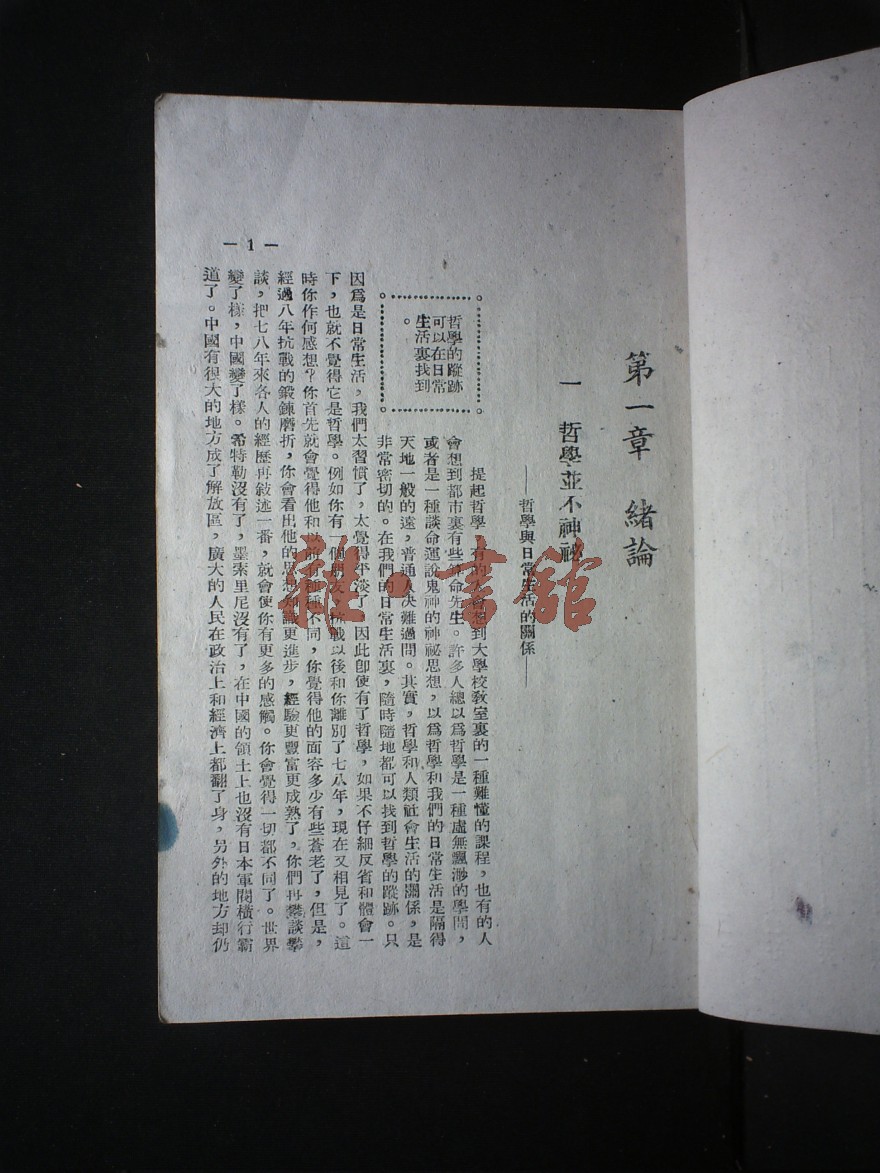 第一章　緒論
一　哲學並不神祕
——哲學與日常生活的關係——
哲學的蹤跡
可以在日常
生活裏找到
。
提起哲學，有的人會想到大學校教室裏的一種難懂的課程，也有的人
會想到都市裏有些算命先生。許多人總以爲哲學是一種虛無飄渺的學問，
或者是一種談命運說鬼神的神祕思想，以爲哲學和我們的日常生活是隔得
天地一般的遠，普通人決難過問。其實，哲學和人類社會生活的關係，是
非常密切的。在我們的日常生活裏，隨時隨地都可以找到哲學的蹤跡。只
因爲是日常生活，我們太習慣了，太覺得平淡了，因此卽使有了哲學，如果不仔細反省和體會一
下，也就不覺得它是哲學。例如你有一個朋友，抗戰以後和你離別了七八年，現在又相見了。這
時你作何感想？你首先就會覺得他和以前有種種不同，你覺得他的面容多少有些蒼老了，但是，
經過八年抗戰的鍛鍊磨折，你會看出他的思想知識更進步，經驗更豐富更成熟了，你們再攀談攀
談，把七八年來各人的經歷再敍述一番，就會使你有更多的感觸。你會覺得一切都不同了。世界
變了樣，中國變了樣。希特勒沒有了，墨索里尼沒有了，在中國的領土上也沒有日本軍閥橫行霸
道了。中國有很大的地方成了解放區，廣大的人民在政治上和經濟上都翻了身，另外的地方却仍
— 1 —
龍·書館